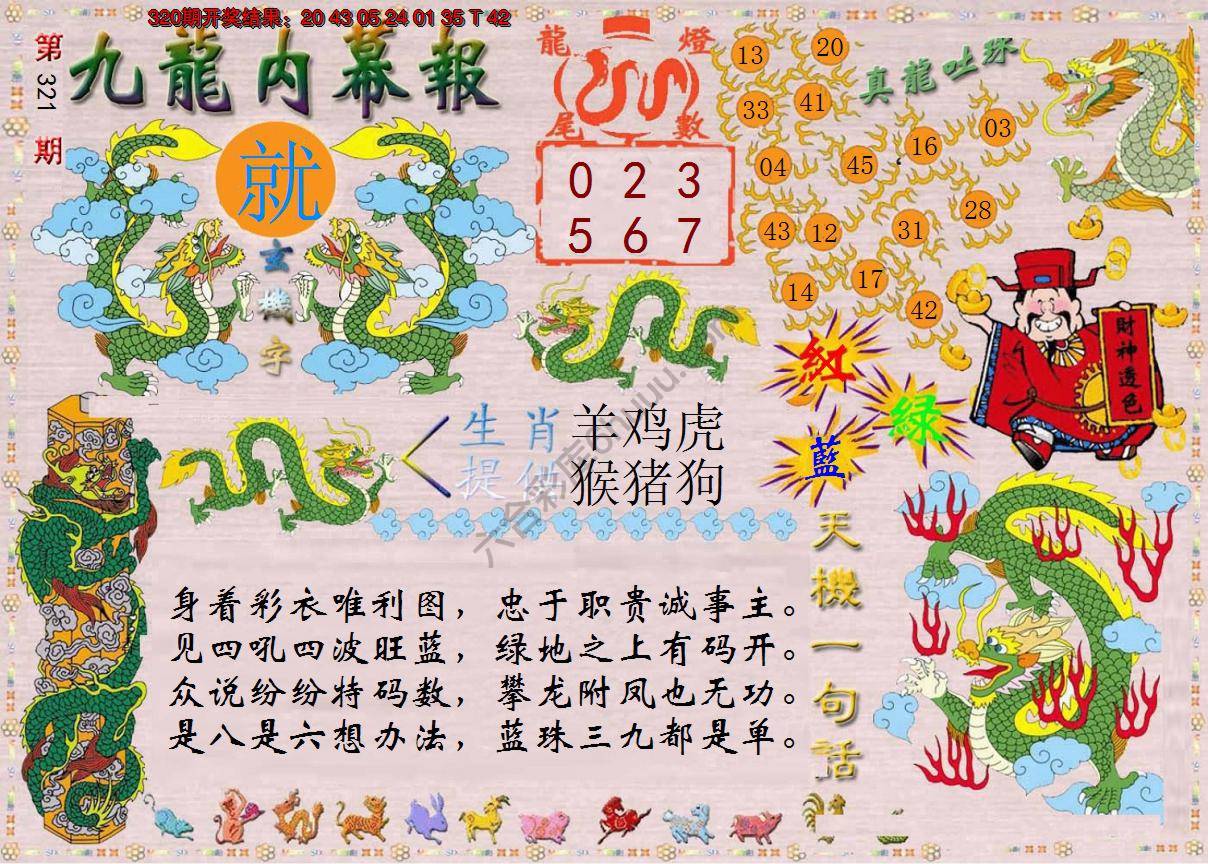 320期开奖结果：20 43 05 24 01 35 T 42
第321期
九龍内幕報
就
玄機字
龍燈
尾數
0 2 3
5 6 7
真龍吐珠
13 20
33 41
04 45 16 03
43 12 31 28
14 17 42
紅
綠
藍
財神透色
生肖 羊鸡虎
提供 猴猪狗
天機一句話
身着彩衣唯利图，忠于职贵诚事主。
见四吼四波旺蓝，绿地之上有码开。
众说纷纷特码数，攀龙附凤也无功。
是八是六想办法，蓝珠三九都是单。